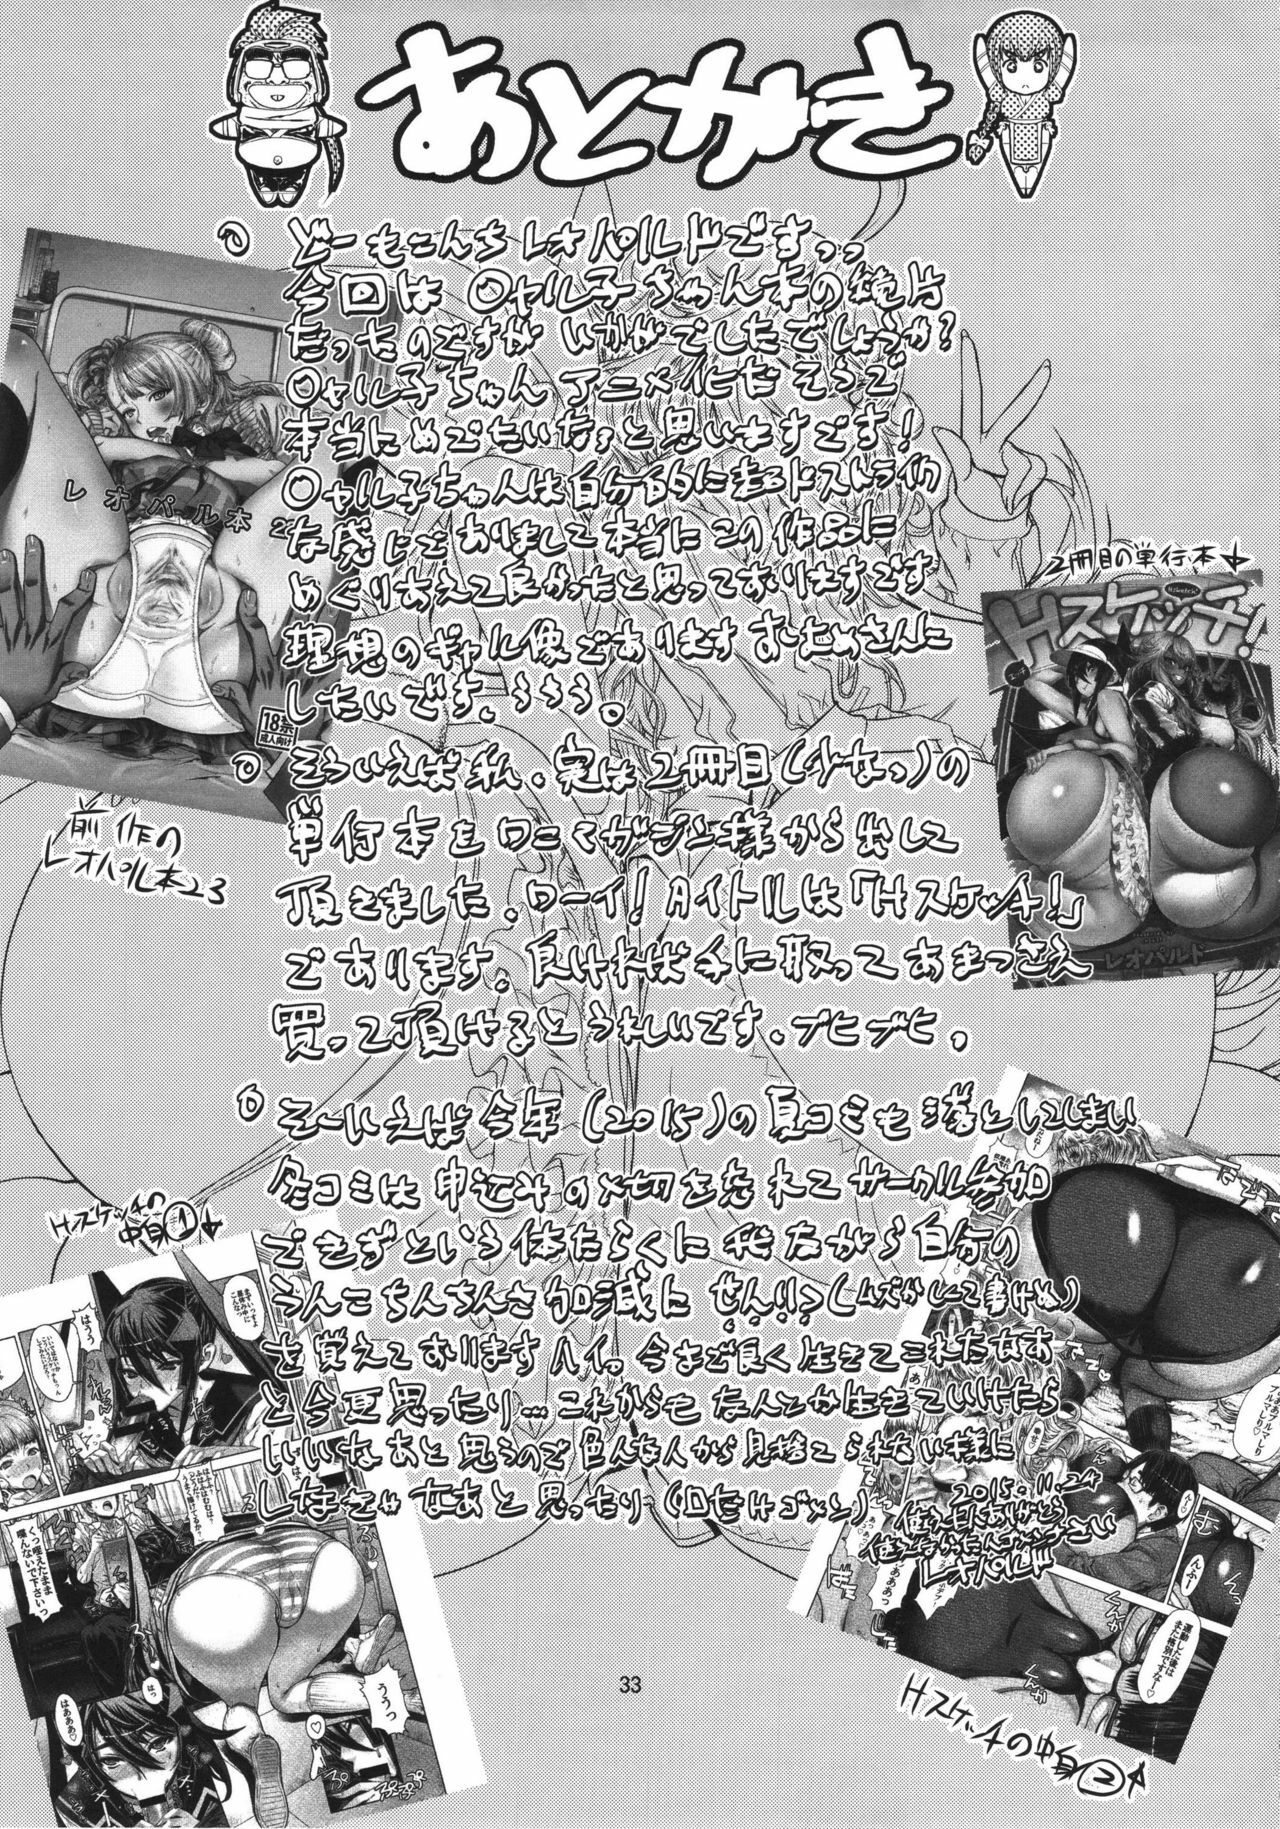 あとがき
どーもこんちレオパルドですっ、
今回は〇ャル子ちゃん本の続片
だったのですがいかがでしたでしょうか?
〇ャル子ちゃんアニメ化だそうで
本当にめでたいなっと思いますです!
〇ャル子ちゃんは自分的に超ドストライク
な感じでありまして本当にこの作品に
めぐりあえて良かったと思っておりますです
理想のギャル像でありますおよめさんに
したいです、ううう。
そういえば私、実は2冊目(少なっ)の
単行本をワニマガジン様から出して
頂きました、ワーイ!タイトルは「Hスケッチ!」
であります。良ければ手に取ってあまつさえ
買って頂けるとうれしいです、ブヒブヒ。
そーいえば今年(2015)の夏コミも落としてしまい
冬コミは申込みの〆切を忘れてサークル参加
できずという体たらくに我ながら自分の
うんこちんちんさ加減にせんりつ(ムズかしくて書けぬ)
を覚えておりますハイ。今まで良く生きてこれたなあ
と今更思ったり…これからもなんとか生きていけたら
いいなあと思うので色んな人から見捨てられない様に
しなきゃなあと思ったり(口だけゴメン)
2015.11.24
レオパルド
レオパル本2
18禁
成人向け
前作の
レオパル本23
2冊目の単行本↓
Hスケッチ!
レオパルド
Hスケッチの
中身①↓
はうう
くっ咥えたまま
噛んないで下さいっ
はっ
はあああ♡
ううっ
ぷ
ぷぷぷ
むっ
んふー
運動した後は
また格別ですなー♡
Hスケッチの中身②↑
33